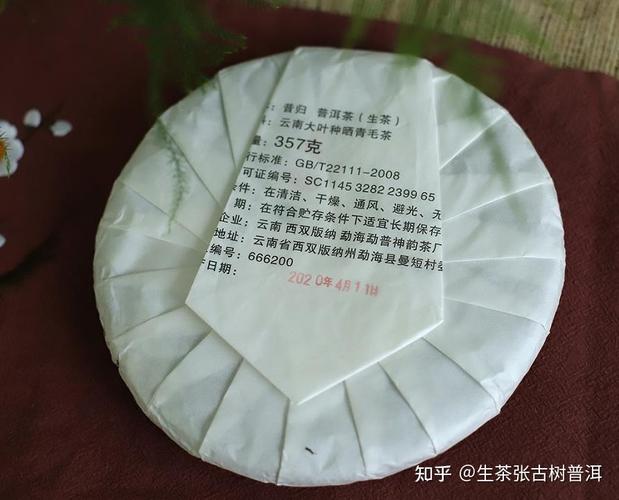 ：昔归 普洱茶（生茶）
：云南大叶种晒青毛茶
量：357克
行标准：GB/T22111-2008
可证编号：SC1145 3282 2399 65
条件：在清洁、干燥、通风、避光、无
期：在符合贮存条件下适宜长期保存
企业：云南 西双版纳 勐海勐普神韵茶厂
地址：云南省西双版纳州勐海县曼短村委
编号：666200
日期：
2020年4月11日
知乎 @生茶张古树普洱